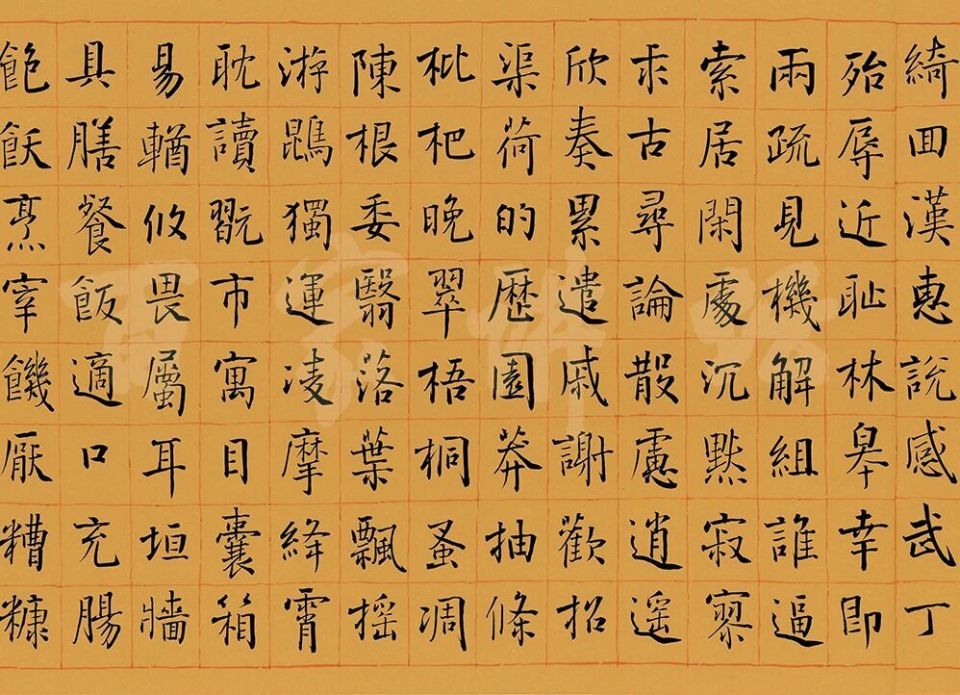 綺回漢惠說感武丁
殆辱近耻林皋幸即
兩疏見機解組誰逼
索居閑處沉默寂寥
求古尋論散慮逍遙
欣奏累遣戚謝歡招
渠荷的歷園莽抽條
枇杷晚翠梧桐蚤凋
陳根委翳落葉飄搖
游鵾獨運凌摩絳霄
耽讀翫市寓目囊箱
易輶攸畏屬耳垣牆
具膳餐飯適口充腸
飽飫烹宰饑厭糟糠